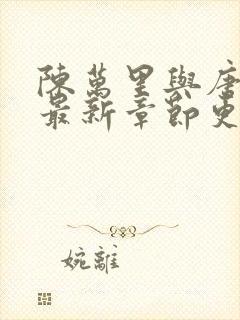 陳萬里與唐
最新章節更
婉離